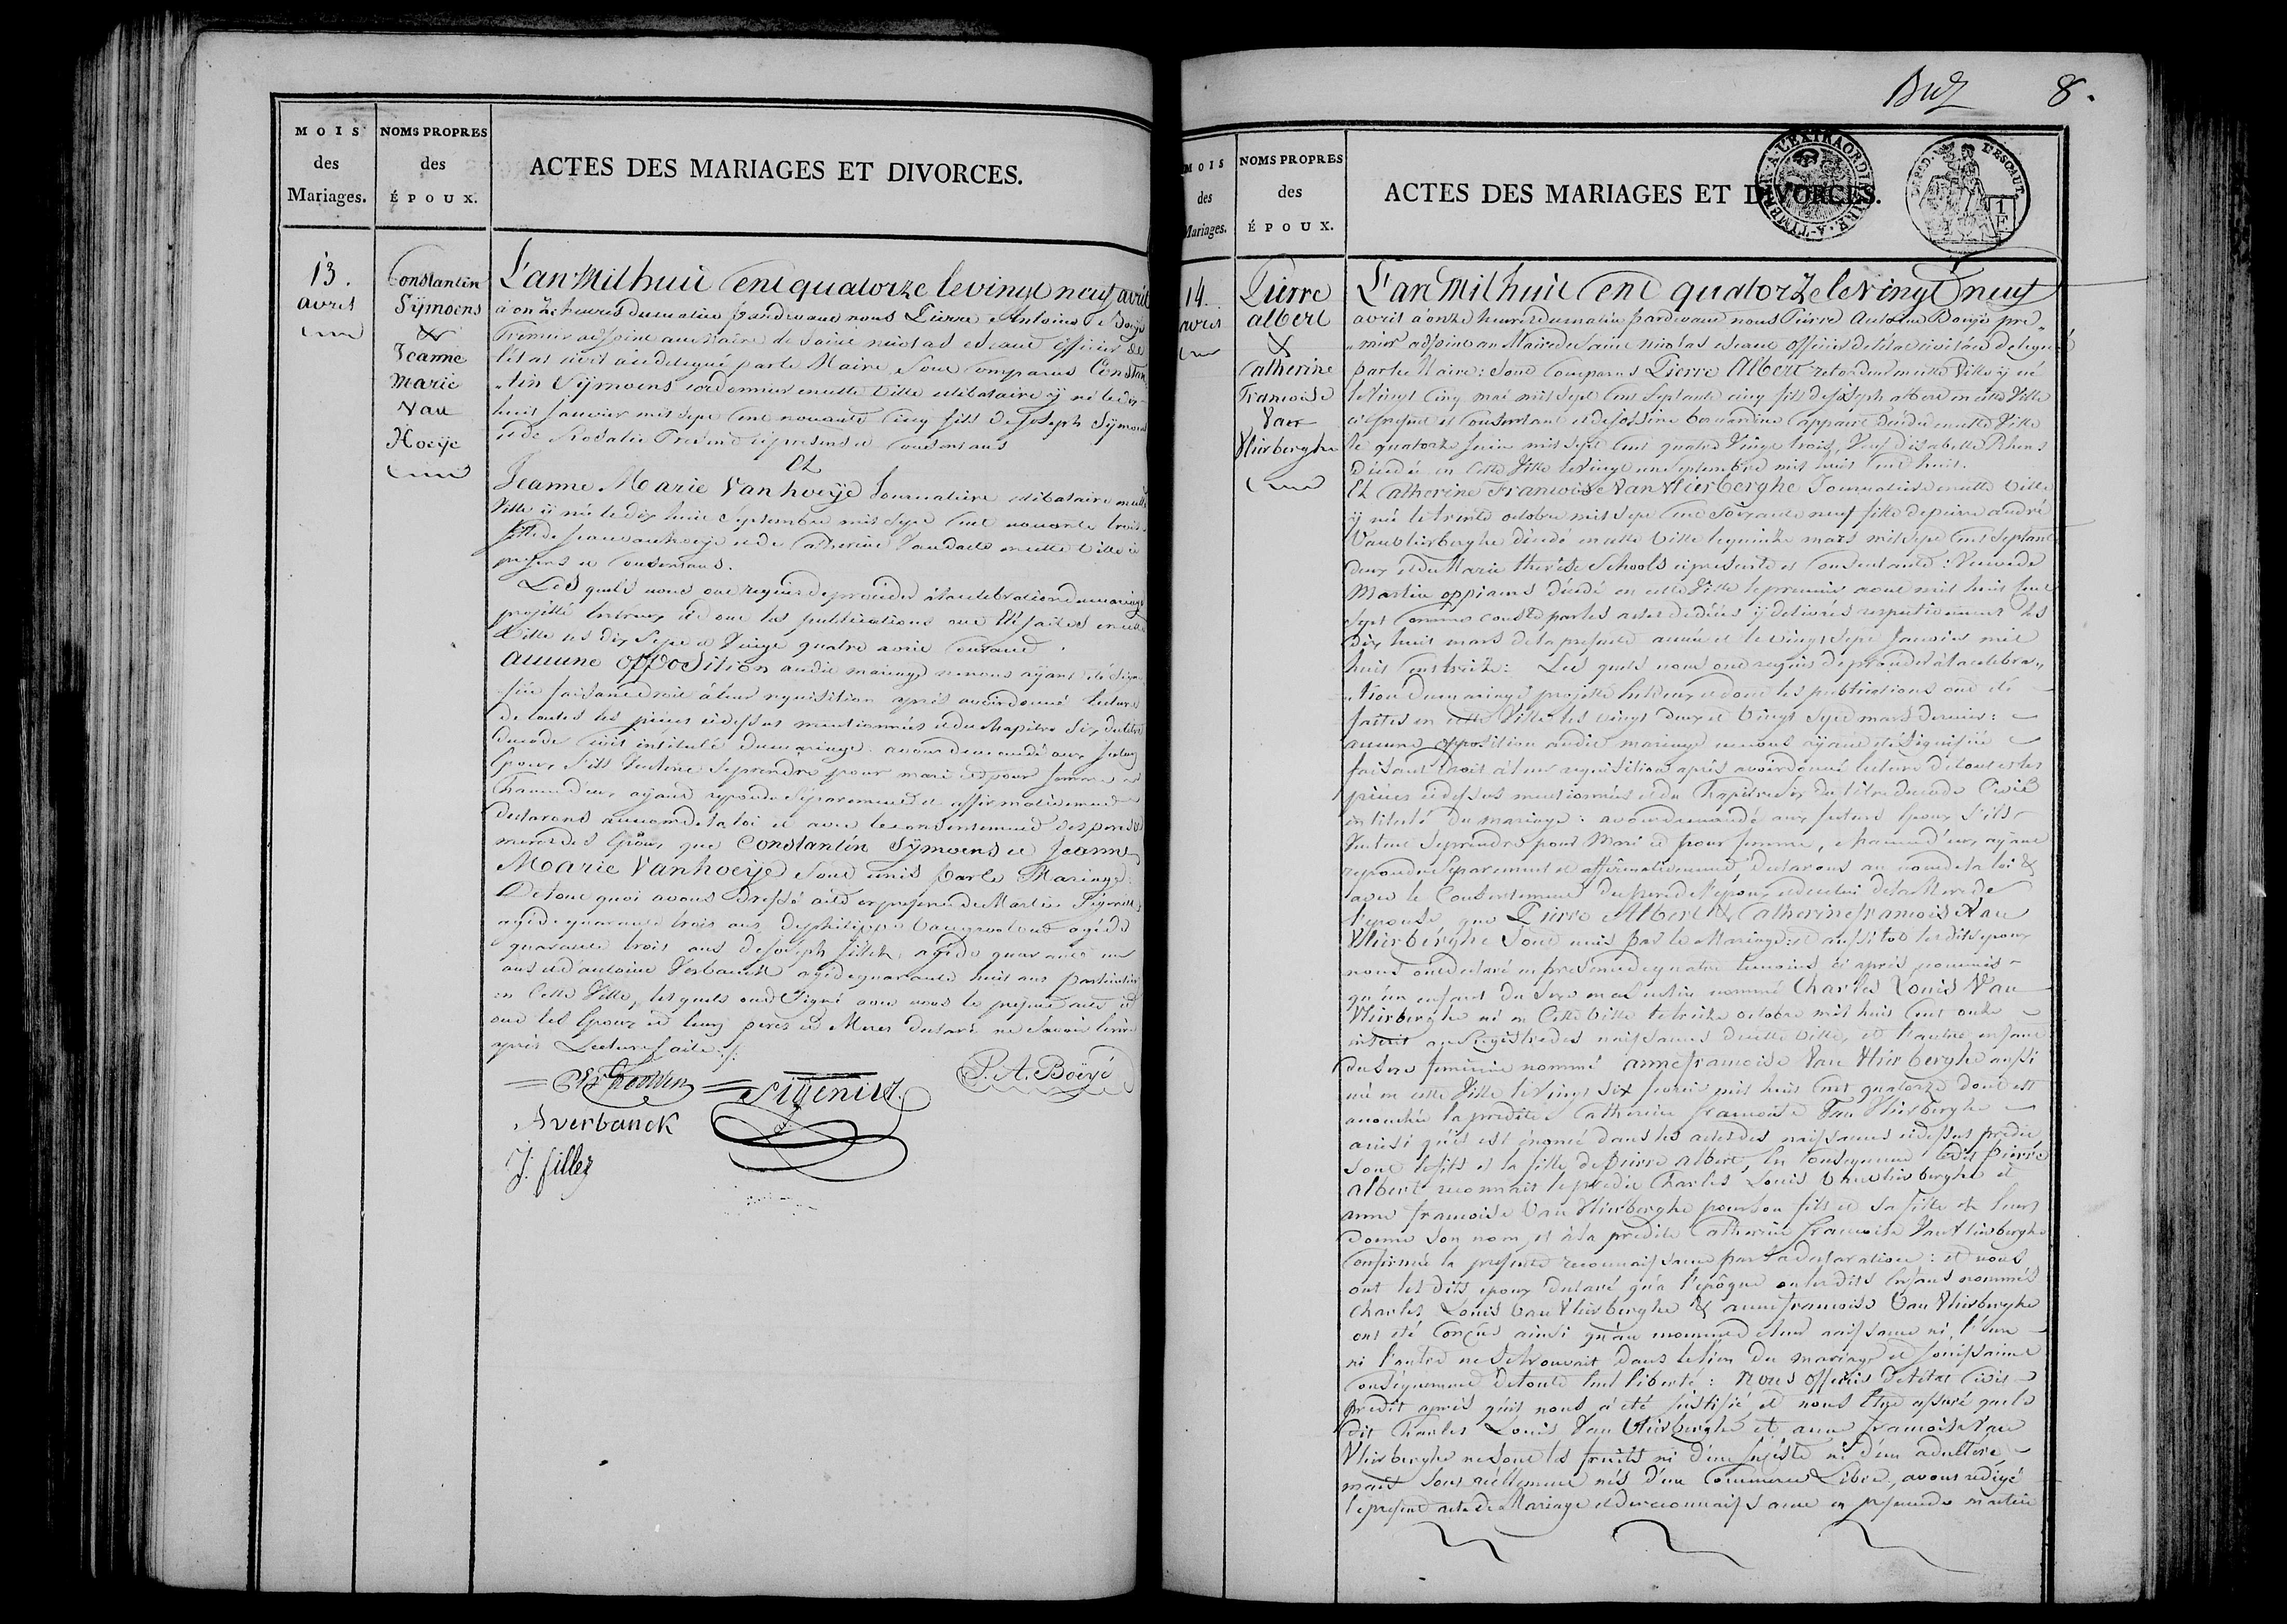 MOIS
des
Mariages.
NOMS PROPRES
des
ÉPOUX.
ACTES DES MARIAGES ET DIVORCES.
13.
avril
Constantin
Sÿmoens
&
Jeanne
Marie
Van
Hoeÿe
L'an Mil huit Cent quatorze le vingt neuf avril
à onze heures du matin pardevant nous Pierre Antoine Boëyé
Premier adjoint au Maire de Saint nicolas Officier de
l'état civil délégué par le Maire, Sont Comparus Constan
tin Sÿmoens cordonnier en cette Ville celibataire ÿ né le dix
huit Janvier mil sept Cent nonante Cinq fils de Joseph Sÿmoens
et de Rosalie presens et Consentans
Et
Jeanne Marie Van hoeÿe Journaliere celibataire en cette
Ville ÿ née le dix huit Septembre mil Sept Cent nonante trois
fille de Jean vanhoeÿe et de Catherine Vandaele en cette Ville ci
presens et Consentans.
Les quels nous ont requis de proceder à la celebration du mariage
projetté entr'eux et dont les publications ont Eté faites en cette
Ville les dix Sept et Vingt quatre avril Courant.
aucune opposition audit mariage ne nous aÿant été Signi
fiée faisant Droit à leur requisition après avoir donné lecture
de toutes les pièces cidessus mentionnées et du chapitre Six du titre
du code Civil intitulé du mariage: avons demandé aux futurs
Epoux S'ils Veulent Se prendre pour mari et pour femme
Chacun d'eux aÿant repondu Séparement et affirmativement
declarons au nom de la loi et avec le consentement des peres et
meres des Epoux que Constantin Sÿmoens et Jeanne
Marie Vanhoeÿe Sont unis par le Mariage:
De tout quoi avons dressé acte en presence de Martin
agé de quarante trois ans, de philippe agé de
quarante trois ans de Joseph filler, agé de quarante un
ans et d'antoine Verbanck agé de quarante huit ans particuliers
en Cette Ville, les quels ont Signé avec nous le present acte et
ont les Epoux et leurs peres et Meres declaré ne Savoir Ecrire
après Lecture faite.
P. A. Boëyé
Averbanck
J: filler
8.
MOIS
des
Mariages.
NOMS PROPRES
des
ÉPOUX.
ACTES DES MARIAGES ET DIVORCES.
TIMBRE A L'EXTRAORDINAIRE
L'ESCAUT
14.
avril
Pierre
albert
&
Catherine
Francoise
Van
Vlierberghe
L'an Mil huit Cent quatorze le Vingt neuf
avril à onze heures du matin pardevant nous Pierre Antoine Boëyé pre
mier adjoint au Maire de Saint Nicolas Officier de l'état civil délégué
par le Maire: Sont Comparus Pierre Albert en cette Ville ÿ né
le Vingt Cinq mai mil Sept Cent Septante cinq fils de Joseph albert en cette Ville
ci present et Consentant et de bernardine decedée en cette Ville
le quatorze Juin mil sept Cent quatre Vingt trois, Veuf d'isabelle
décédée en Cette Ville le Vingt un Septembre mil huit Cent huit.
Et Catherine Francoise Van Vlierberghe Journaliere en cette Ville
ÿ née le trente octobre mil Sept Cent Soixante neuf fille de pierre andré
Van vlierberghe décédé en cette Ville le quinze mars mil Sept Cent Septante
deux et de Marie therèse Schools ci presente et Consentante: Veuve de
Martin décédé en cette Ville le premier aout mil huit Cent
Sept Comme Conste par les actes de décès ÿ delivrés respectivement les
Dix huit mars de la presente année et le vingt Sept Janvier mil
huit Cent treize: Les quels nous ont requis de proceder à la celebra
tion du mariage projetté entr'eux et dont les publications ont été
faites en cette Ville les vingt deux et Vingt Sept mars dernier:
aucune opposition audit mariage ne nous aÿant été Signifiée
faisant Droit à leur requisition après avoir donné lecture de toutes les
pièces cidessus mentionnées et du Chapitre Six du titre du code Civil
intitulé du mariage: avons demandé aux futurs Epoux S'ils
Veulent Se prendre pour Mari et pour femme, chacun d'eux aÿant
repondu Séparement et affirmativement, Declarons au nom de la loi &
avec le Consentement du pere de l'epoux et de celui de la Mere de
l'epouse, que Pierre Albert & Catherine francoise Van
Vlierberghe Sont unis par le Mariage: et aussitot les dits epoux
nous ont declaré en presence de quatre temoins ci après nommés
qu'un enfant du Sexe masculin nommé Charles Louis Van
Vlierberghe né en Cette Ville le treize octobre mil huit Cent onze
inscrit au Registre des naissances de cette Ville, et l'autre enfant
du Sexe feminin nommé anne francoise Van Vlierberghe aussi
né en cette Ville le Vingt Six fevrier mil huit Cent quatorze dont est
accouchée la predite Catherine francoise Van Vlierberghe
ainsi qu'il est énoncé dans les actes des naissances cidessus predit
Sont le fils et la fille de pierre albert, En Consequence ledit pierre
albert reconnait le predit Charles Louis Van vlierberghe et
anne francoise Van Vlierberghe pour Son fils et Sa fille & leur
donne Son nom, et à la predite Catherine francoise Van Vlierberghe
Confirmé la presente reconnaissance par Sa declaration: et nous
ont les dits epoux declaré qu'a l'epoque ou les dits Enfans nommés
Charles Louis Van Vlierberghe & anne francoise Van Vlierberghe
ont été Conçus ainsi qu'au moment de leur naissance ni l'un
ni l'autre ne Se trouvait dans le lien du mariage et Jouissaient
Conséquemment de toute leur liberté: nous Officier de l'état Civil
predit après qu'il nous a été Justifié et nous être assuré que le
dit Charles Louis Van Vlierberghe et anne francoise Van
Vlierberghe ne Sont les fruits ni d'un inceste ni d'un adultère,
mais Sont réellement nés d'un Commerce Libre, avons redigé
le present acte de Mariage et de reconnaissance en presence de martin